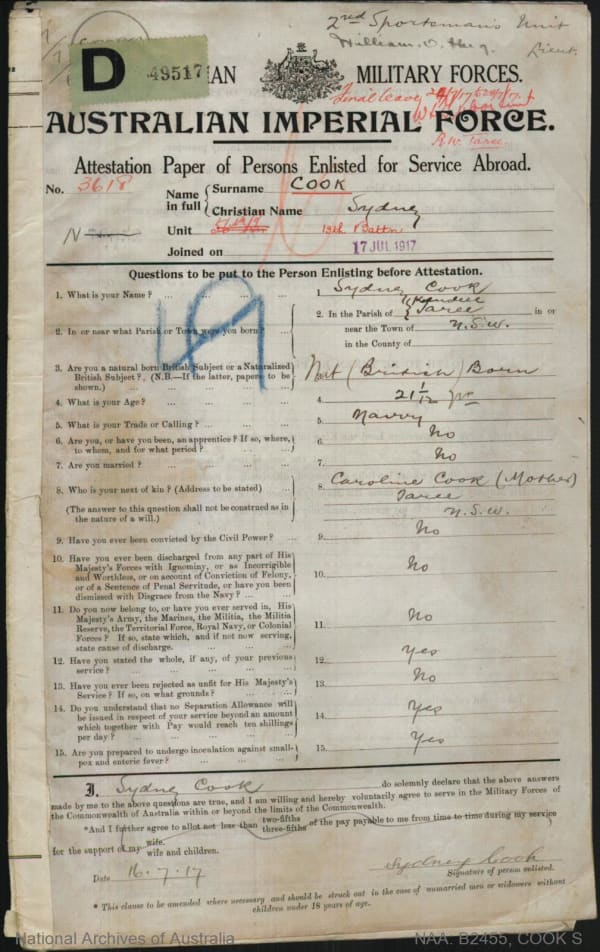 2nd Sportsman's Unit
Lieut.
D 49517 IAN MILITARY FORCES.
Final leave
AUSTRALIAN IMPERIAL FORCE.
Taree
Attestation Paper of Persons Enlisted for Service Abroad.
No. 3618
Name in full { Surname COOK
Christian Name Sydney
Unit 19th Battn
Joined on 17 JUL 1917
Questions to be put to the Person Enlisting before Attestation.
1. What is your Name? ... 1. Sydney Cook
2. In or near what Parish or Town were you born? ... 2. In the Parish of Taree in or
near the Town of N.S.W.
in the County of
3. Are you a natural born British Subject or a Naturalized
British Subject? (N.B.—If the latter, papers to be
shown.) ... Nat (British) Born
4. What is your Age? ... 4. 21 1/12 yrs
5. What is your Trade or Calling? ... 5. Navvy
6. Are you, or have you been, an apprentice? If so, where,
to whom, and for what period? ... 6. No
7. Are you married? ... 7. No
8. Who is your next of kin? (Address to be stated) ... 8. Caroline Cook (Mother)
Taree
(The answer to this question shall not be construed as in
the nature of a will.) N.S.W.
9. Have you ever been convicted by the Civil Power? ... 9. No
10. Have you ever been discharged from any part of His
Majesty's Forces with Ignominy, or as Incorrigible
and Worthless, or on account of Conviction of Felony,
or of a Sentence of Penal Servitude, or have you been
dismissed with Disgrace from the Navy? ... 10. No
11. Do you now belong to, or have you ever served in, His
Majesty's Army, the Marines, the Militia, the Militia
Reserve, the Territorial Force, Royal Navy, or Colonial
Forces? If so, state which, and if not now serving,
state cause of discharge. ... 11. No
12. Have you stated the whole, if any, of your previous
service? ... 12. Yes
13. Have you ever been rejected as unfit for His Majesty's
Service? If so, on what grounds? ... 13. No
14. Do you understand that no Separation Allowance will
be issued in respect of your service beyond an amount
which together with Pay would reach ten shillings
per day? ... 14. Yes
15. Are you prepared to undergo inoculation against small-
pox and enteric fever? ... 15. Yes
I, Sydney Cook do solemnly declare that the above answers
made by me to the above questions are true, and I am willing and hereby voluntarily agree to serve in the Military Forces of
the Commonwealth of Australia within or beyond the limits of the Commonwealth.
*And I further agree to allot not less than two-fifths three-fifths of the pay payable to me from time to time during my service
for the support of my wife. wife and children.
Date 16.7.17 Sydney Cook
Signature of person enlisted.
* This clause to be amended where necessary and should be struck out in the case of unmarried men or widowers without
children under 18 years of age.
National Archives of Australia NAA: B2455, COOK S